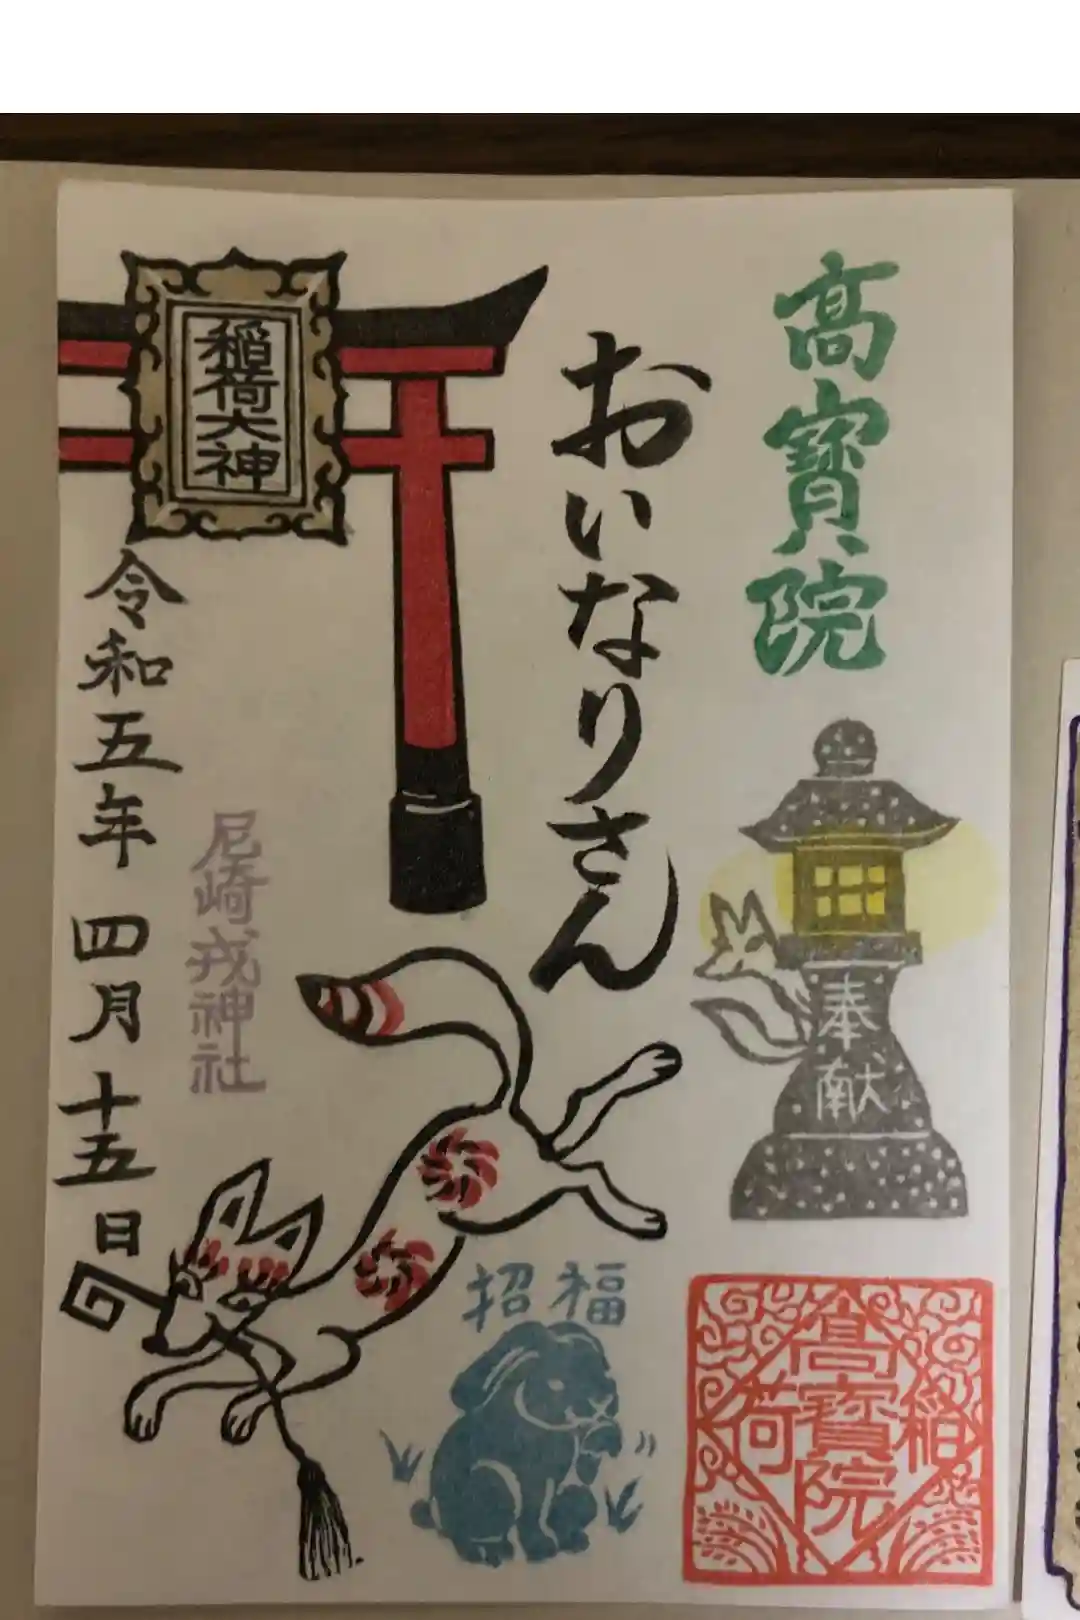 高寳院
奉献
おいなりさん
稲荷大神
令和五年四月十五日
尼崎戎神社
招福
稲荷
高寳院